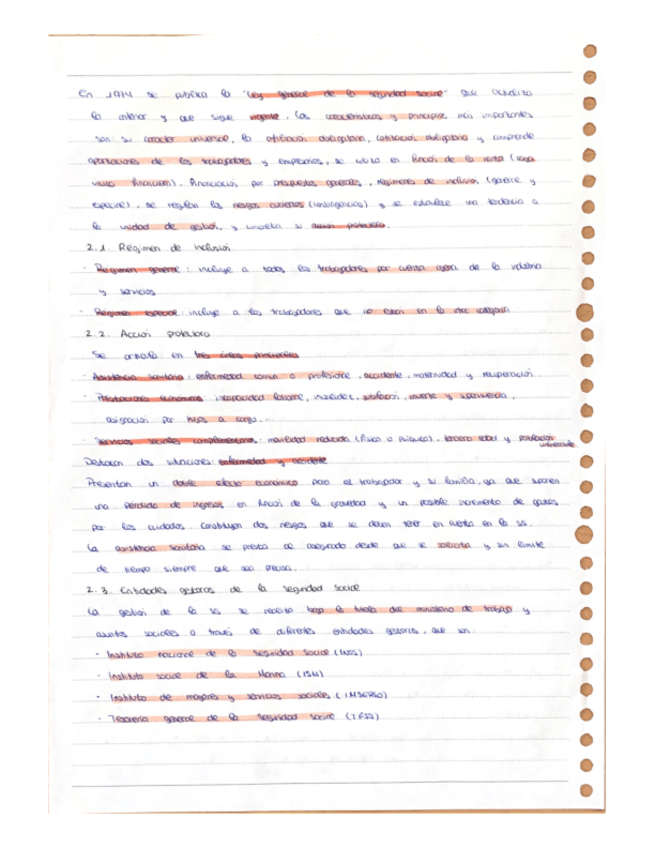 En 1974 se publica la "Ley general de la seguridad social" que actualiza
la anterior y que sigue vigente. Las características y principios más importantes
son: su carácter universal, la afiliación obligatoria, cotización obligatoria y comprende
aportaciones de los trabajadores y empresarios, se cotiza en función de la renta (caja
única financiera), financiación por presupuestos generales, regímenes de inclusión (general y
especial), se regulan los riesgos cubiertos (contingencias) y se establece una tendencia a
la unidad de gestión, y unifica su acción protectora.
2.1. Régimen de inclusión
- Régimen general: incluye a todos los trabajadores por cuenta ajena de la industria
y servicios
- Régimen especial: incluye a los trabajadores que no están en la otra categoría
2.2. Acción protectora
Se articula en tres áreas principales
- Asistencia sanitaria: enfermedad común o profesional, accidente, maternidad y recuperación
- Prestaciones económicas: incapacidad laboral, invalidez, jubilación, muerte y supervivencia,
asignación por hijos a cargo...
- Servicios sociales complementarios: movilidad reducida (física o psíquica), tercera edad y población
Destacan dos situaciones: enfermedad y accidente
Presentan un doble efecto económico para el trabajador y su familia, ya que suponen
una pérdida de ingresos en función de la gravedad y un posible incremento de gastos
por los cuidados. Constituyen dos riesgos que se deben tener en cuenta en la SS.
La asistencia sanitaria se presta al asegurado desde que se solicita y sin límite
de tiempo siempre que sea precisa.
2.3. Entidades gestoras de la seguridad social
La gestión de la SS se realiza bajo la tutela del ministerio de trabajo y
asuntos sociales a través de diferentes entidades gestoras, que son:
- Instituto nacional de la Seguridad Social (INSS)
- Instituto social de la Marina (ISM)
- Instituto de mayores y servicios sociales (IMSERSO)
- Tesorería general de la Seguridad Social (TGSS)